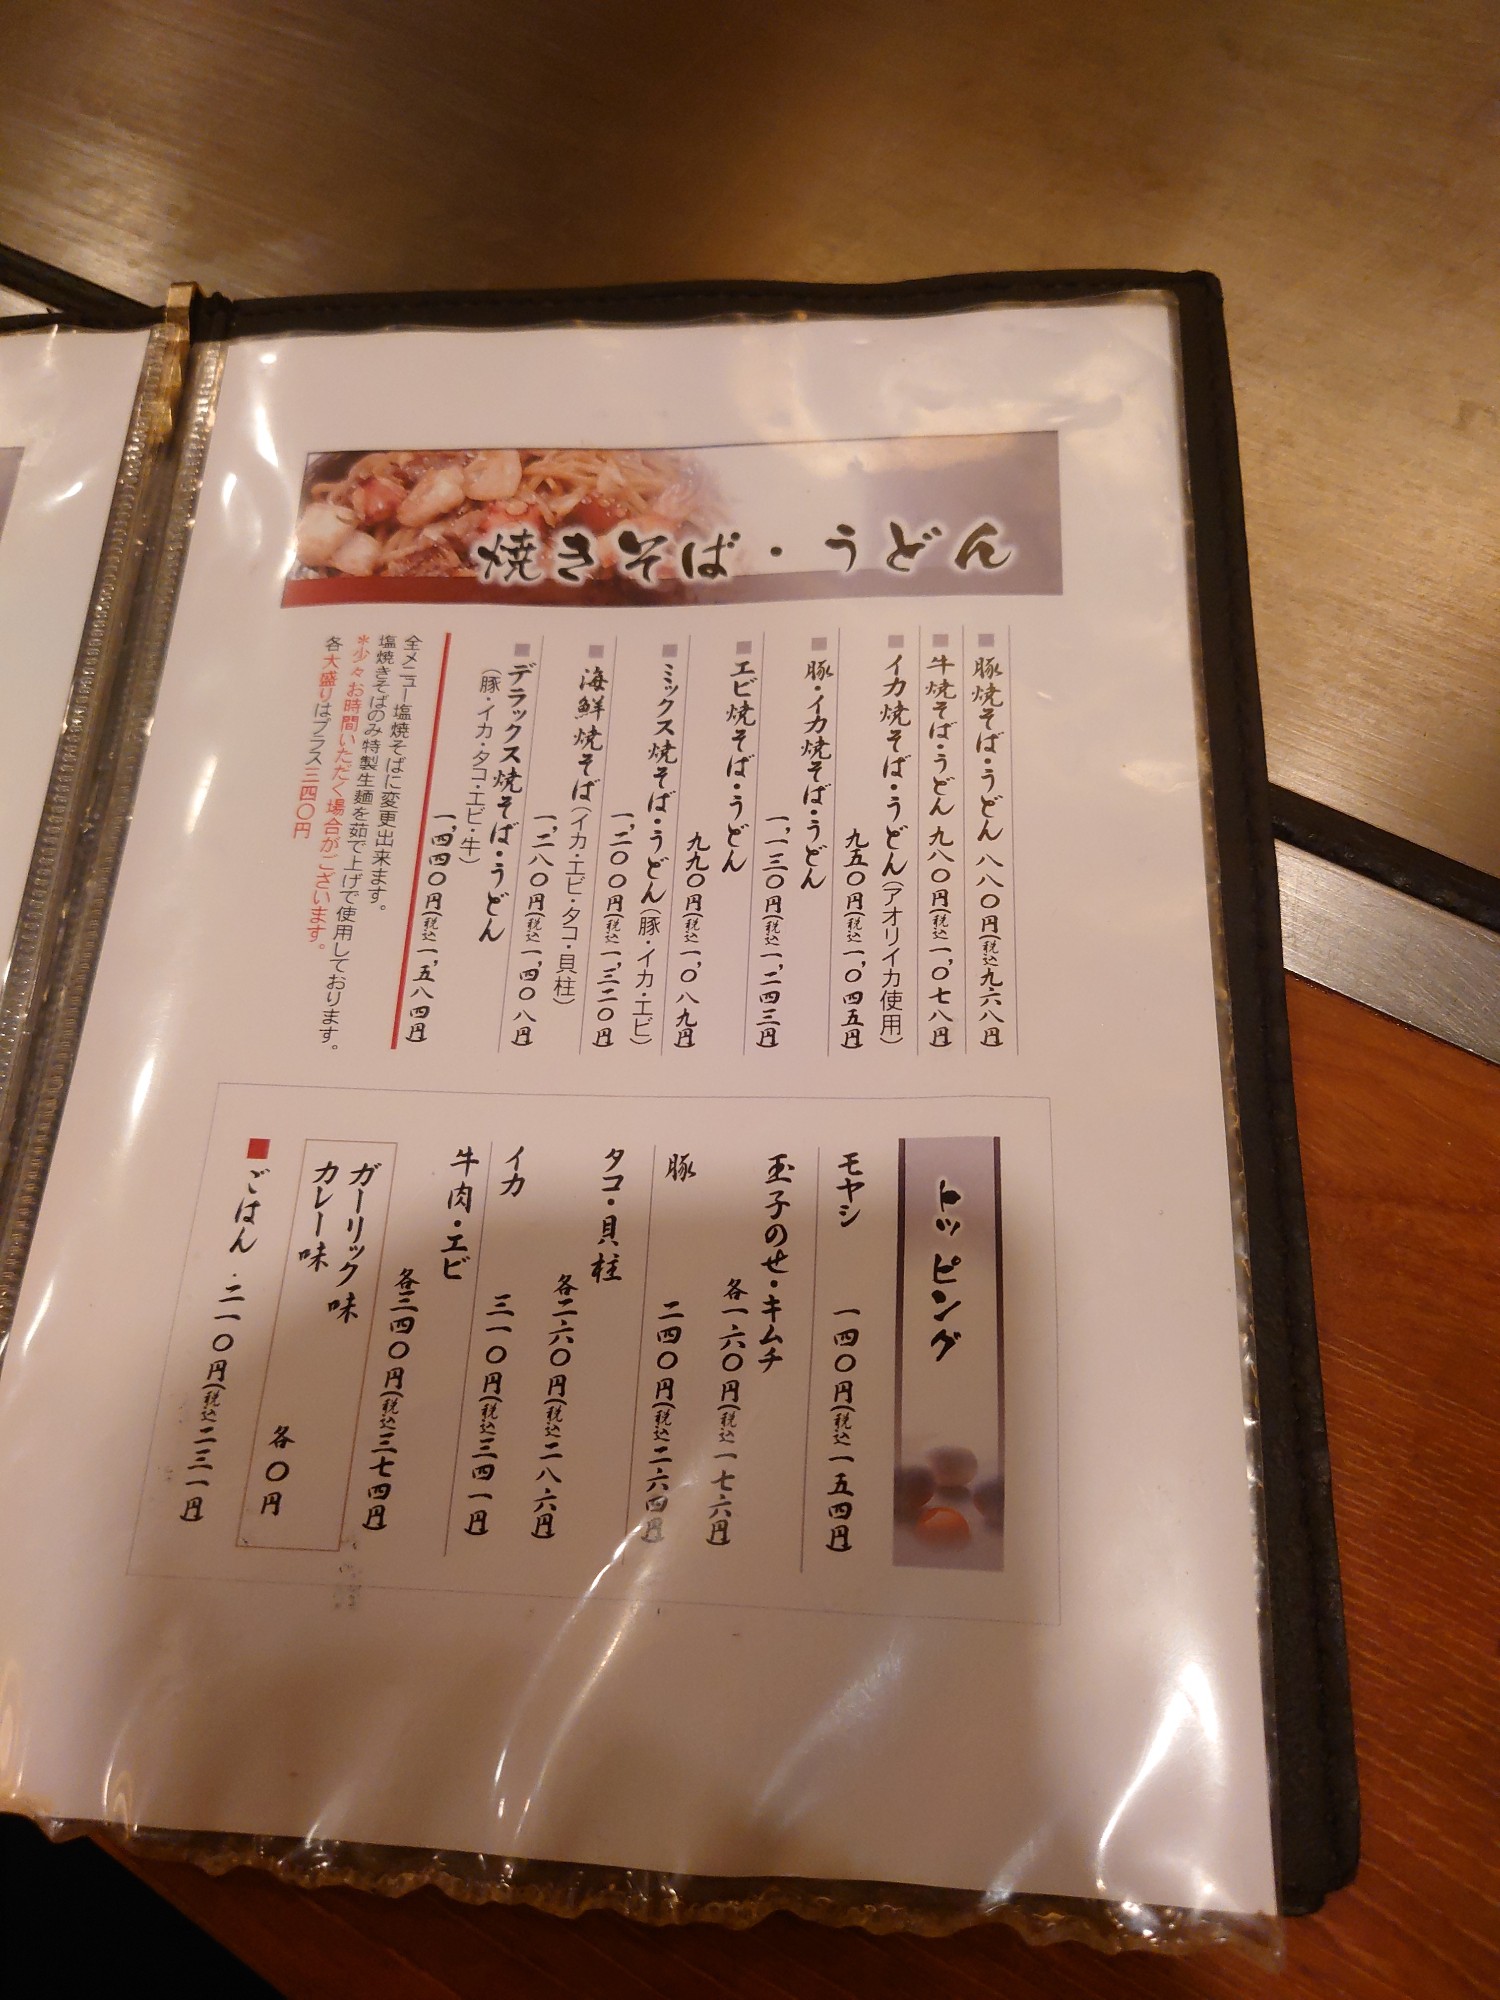 焼きそば・うどん
豚焼そば・うどん 八八〇円(税込九六八円)
牛焼そば・うどん 九八〇円(税込一、〇七八円)
イカ焼そば・うどん(アオリイカ使用)
九五〇円(税込一、〇四五円)
豚・イカ焼そば・うどん
一、一三〇円(税込一、二四三円)
エビ焼そば・うどん
九九〇円(税込一、〇八九円)
ミックス焼そば・うどん(豚・イカ・エビ)
一、二〇〇円(税込一、三二〇円)
海鮮焼そば(イカ・エビ・タコ・貝柱)
一、二八〇円(税込一、四〇八円)
デラックス焼そば・うどん
(豚・イカ・タコ・エビ・牛)
一、四四〇円(税込一、五八四円)
全メニュー塩焼そばに変更出来ます。
塩焼きそばのみ特製生麺を茹で上げで使用しております。
*少々お時間いただく場合がございます。
各大盛りはプラス三四〇円
トッピング
モヤシ 一四〇円(税込一五四円)
玉子のせ・キムチ
各一六〇円(税込一七六円)
豚 二四〇円(税込二六四円)
タコ・貝柱
各二六〇円(税込二八六円)
イカ 三一〇円(税込三四一円)
牛肉・エビ
各三四〇円(税込三七四円)
ガーリック味
カレー味 各〇円
ごはん・二一〇円(税込二三一円)